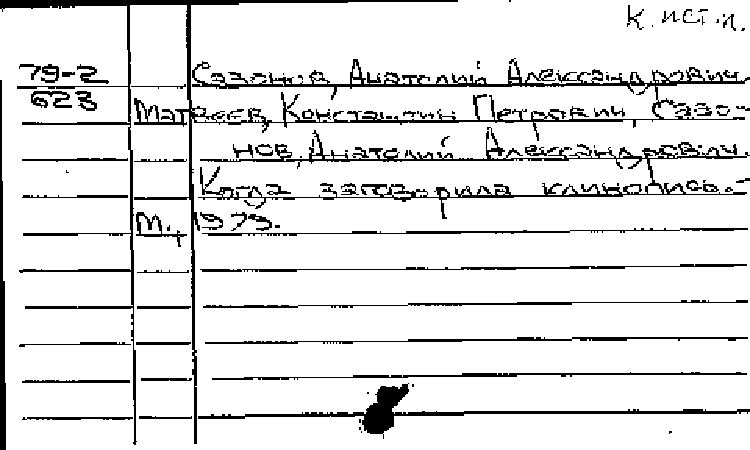 К. ист. л.
79-2
623
Сазонов, Анатолий Александрович.
Матвеев, Константин Петрович, Сазо-
нов, Анатолий Александрович.
Когда заговорила клинопись.-
М., 1979.